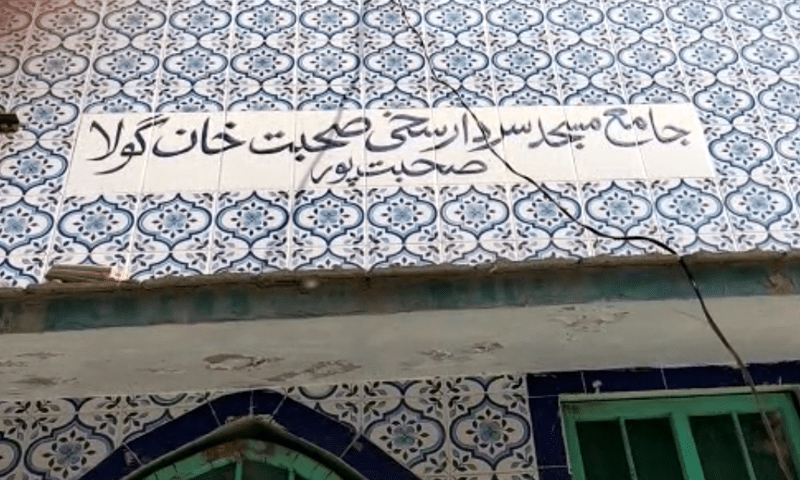 جامع مسجد سردار سخی صحبت خان گولا
صحبت پور